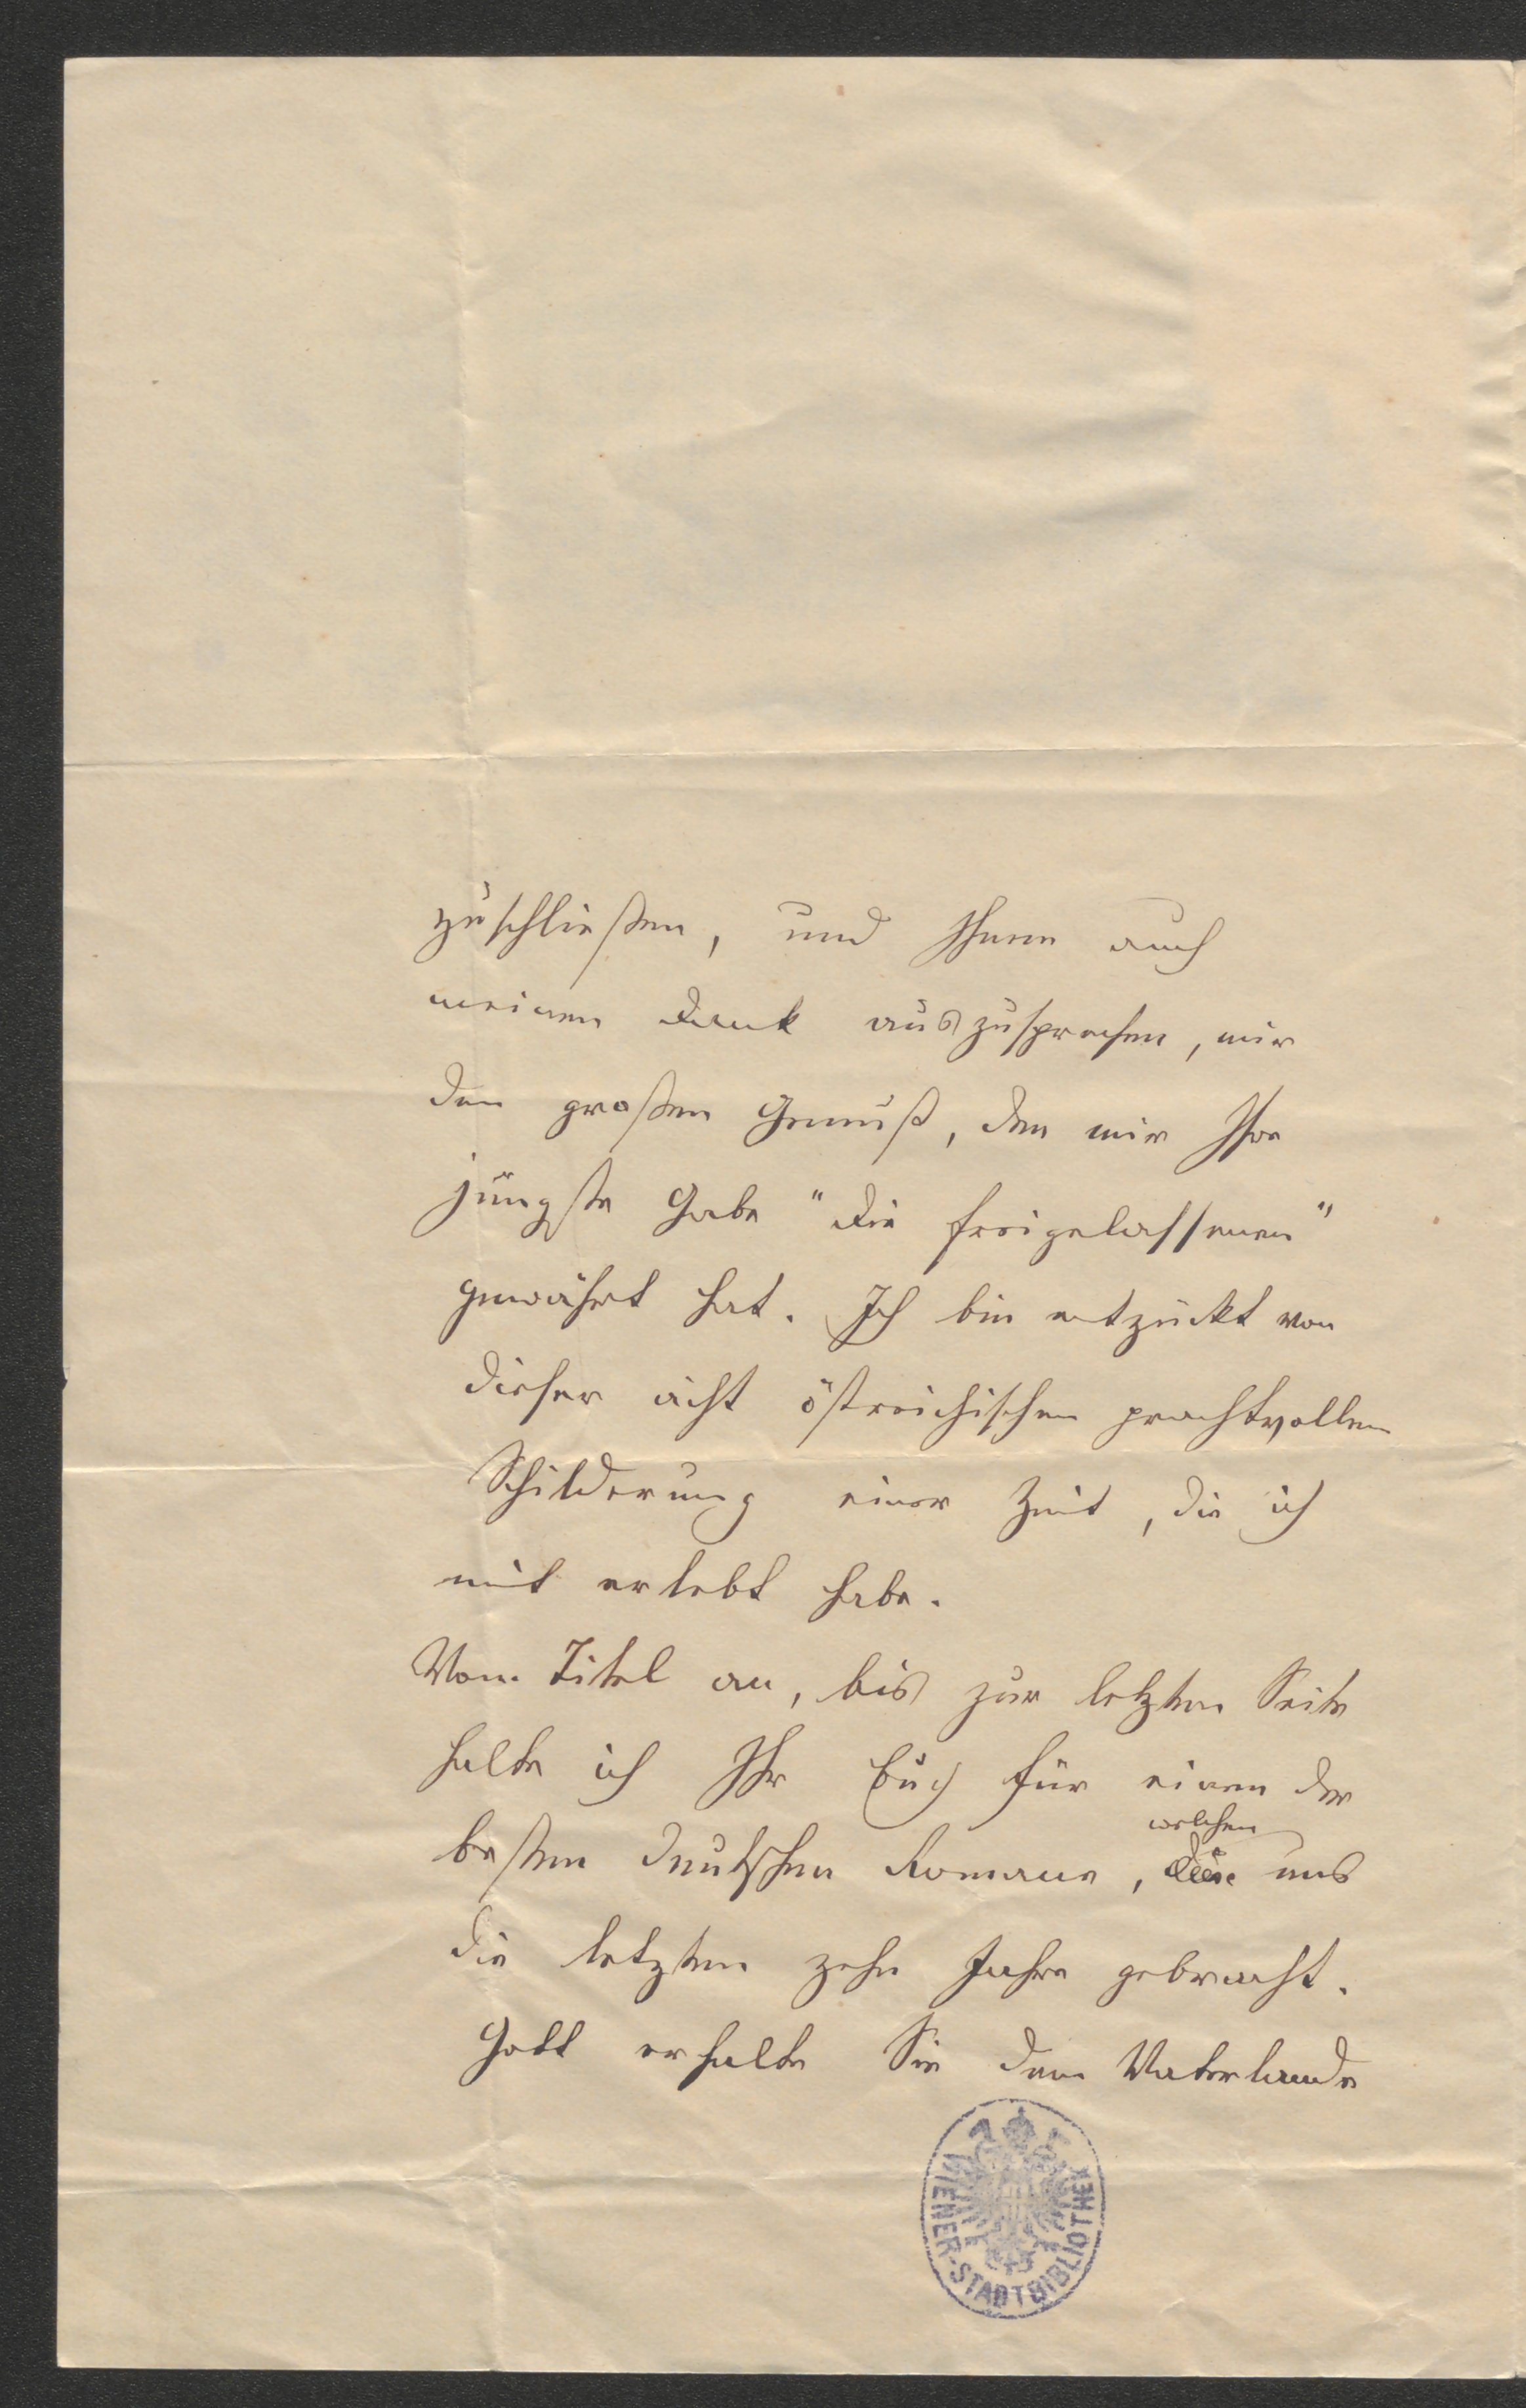 zuschließen, und Ihnen auch
meinen Dank auszusprechen, mir
den großen Genuß, den mir Ihre
jüngste Gabe "Die Freigelassenen"
gewährt hat. Ich bin entzückt von
dieser ächt östreichischen prachtvollen
Schilderung einer Zeit, die ich
mit erlebt habe.
Vom Titel an, bis zur letzten Seite
halte ich Ihr Buch für einen der
welchen
besten deutschen Romane, uns
die letzten zehn Jahre gebracht.
Gott erhalte Sie dem Vaterlande
WIENER-STADTBIBLIOTHEK